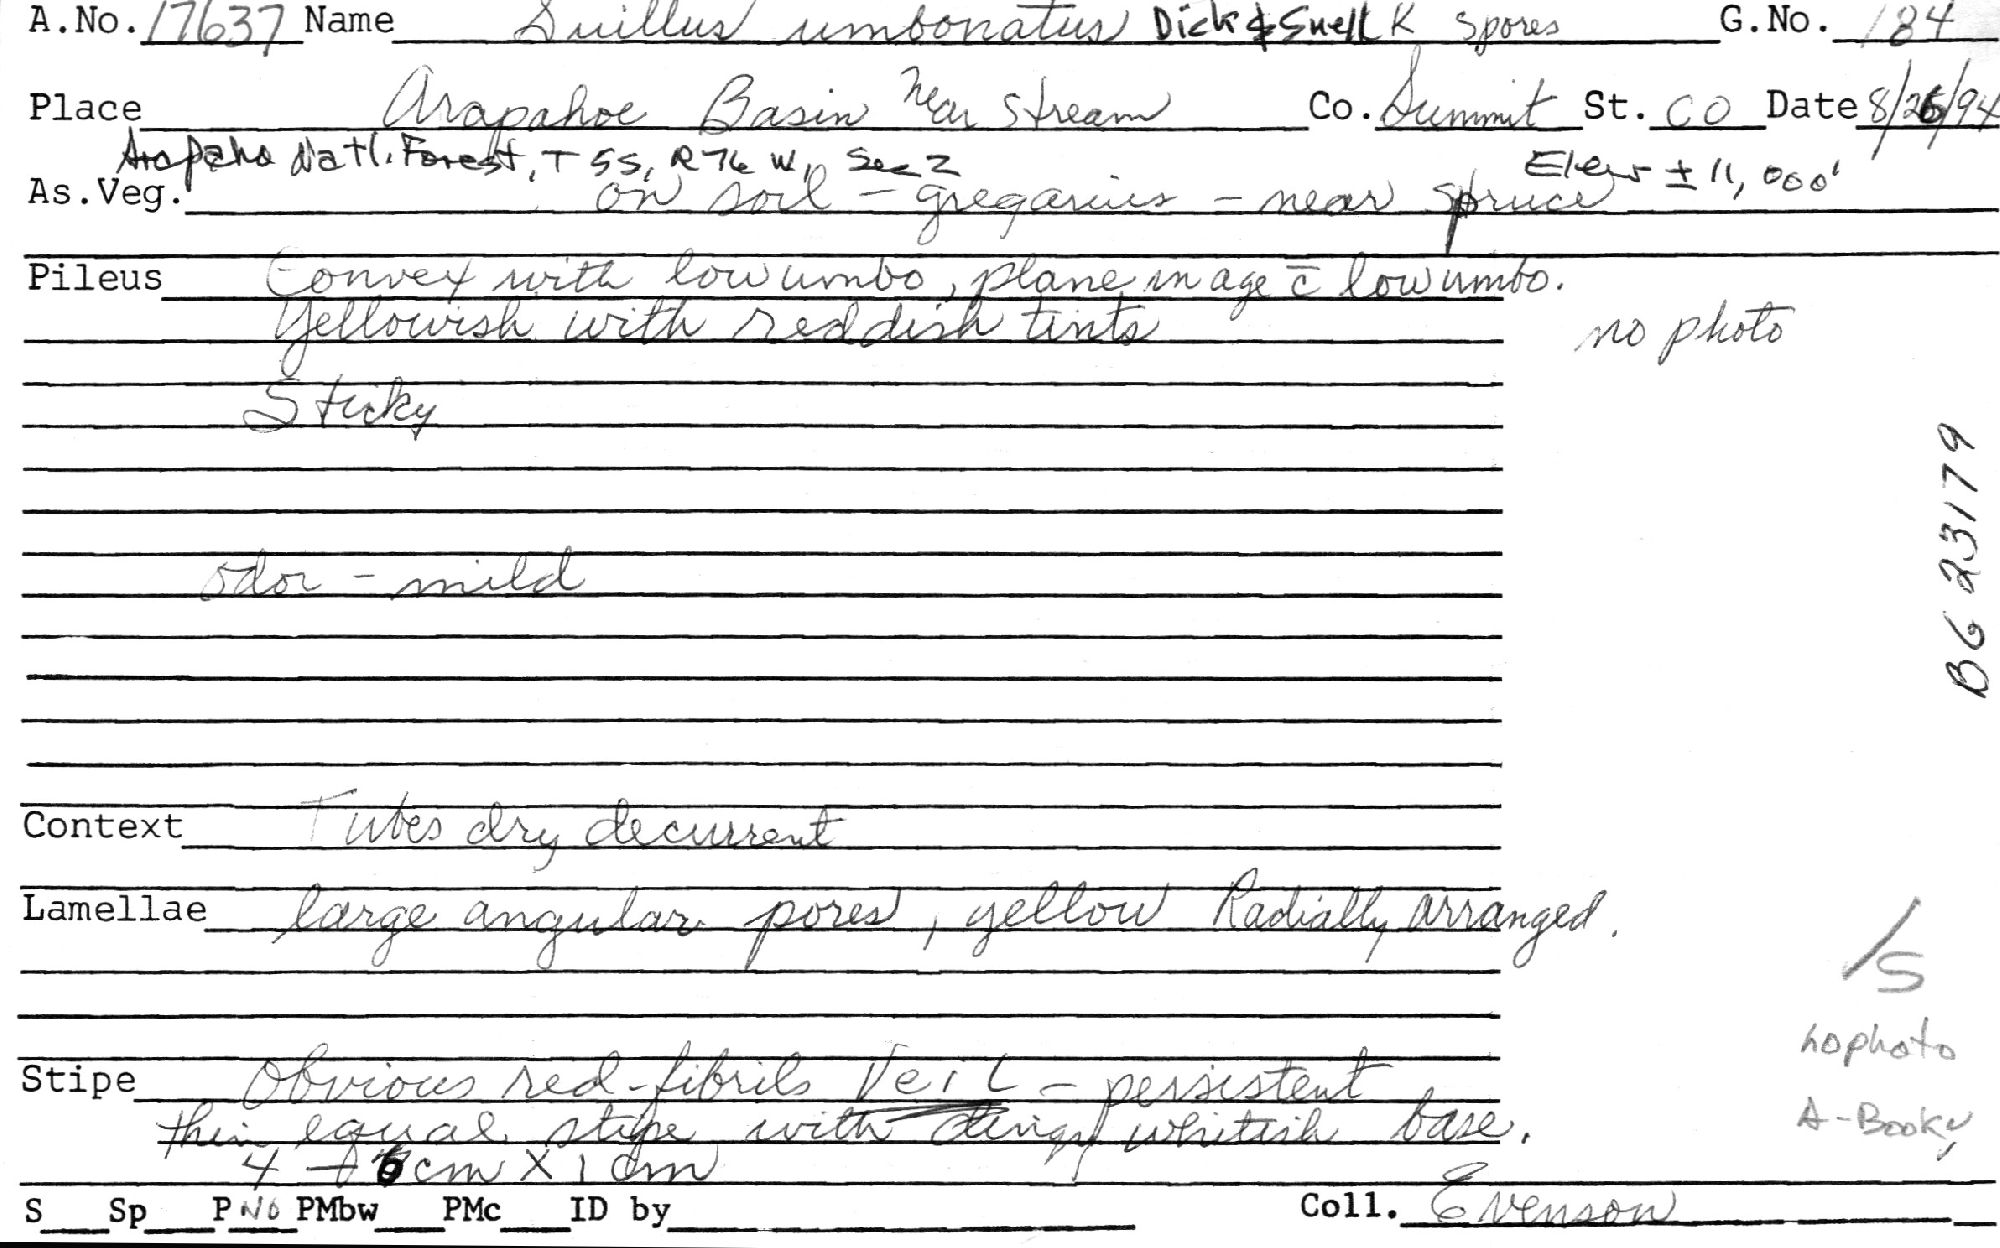 A.No. 17637 Name Suillus umbonatus Dick & Snell K Spores G.No. 184
Place Arapahoe Basin Near Stream Co. Summit St. CO Date 8/26/94
Arapaho Natl. Forest, T 5S, R 76 W, Sec 2 Elev ± 11,000'
As.Veg. on soil - gregarius - near spruce
Pileus Convex with low umbo, plane in age c̄ low umbo.
Yellowish with reddish tints
no photo
Sticky
BG 23179
odor - mild
Context Tubes dry decurrent
Lamellae large angular pores, yellow Radially arranged.
/S
Stipe Obvious red-fibrils Veil - persistent
no photo
thin equal stipe with dingy whitish base.
A-Booky
4 - 6 cm X 1 cm
S Sp P NO PMbw PMc ID by Coll. Evenson